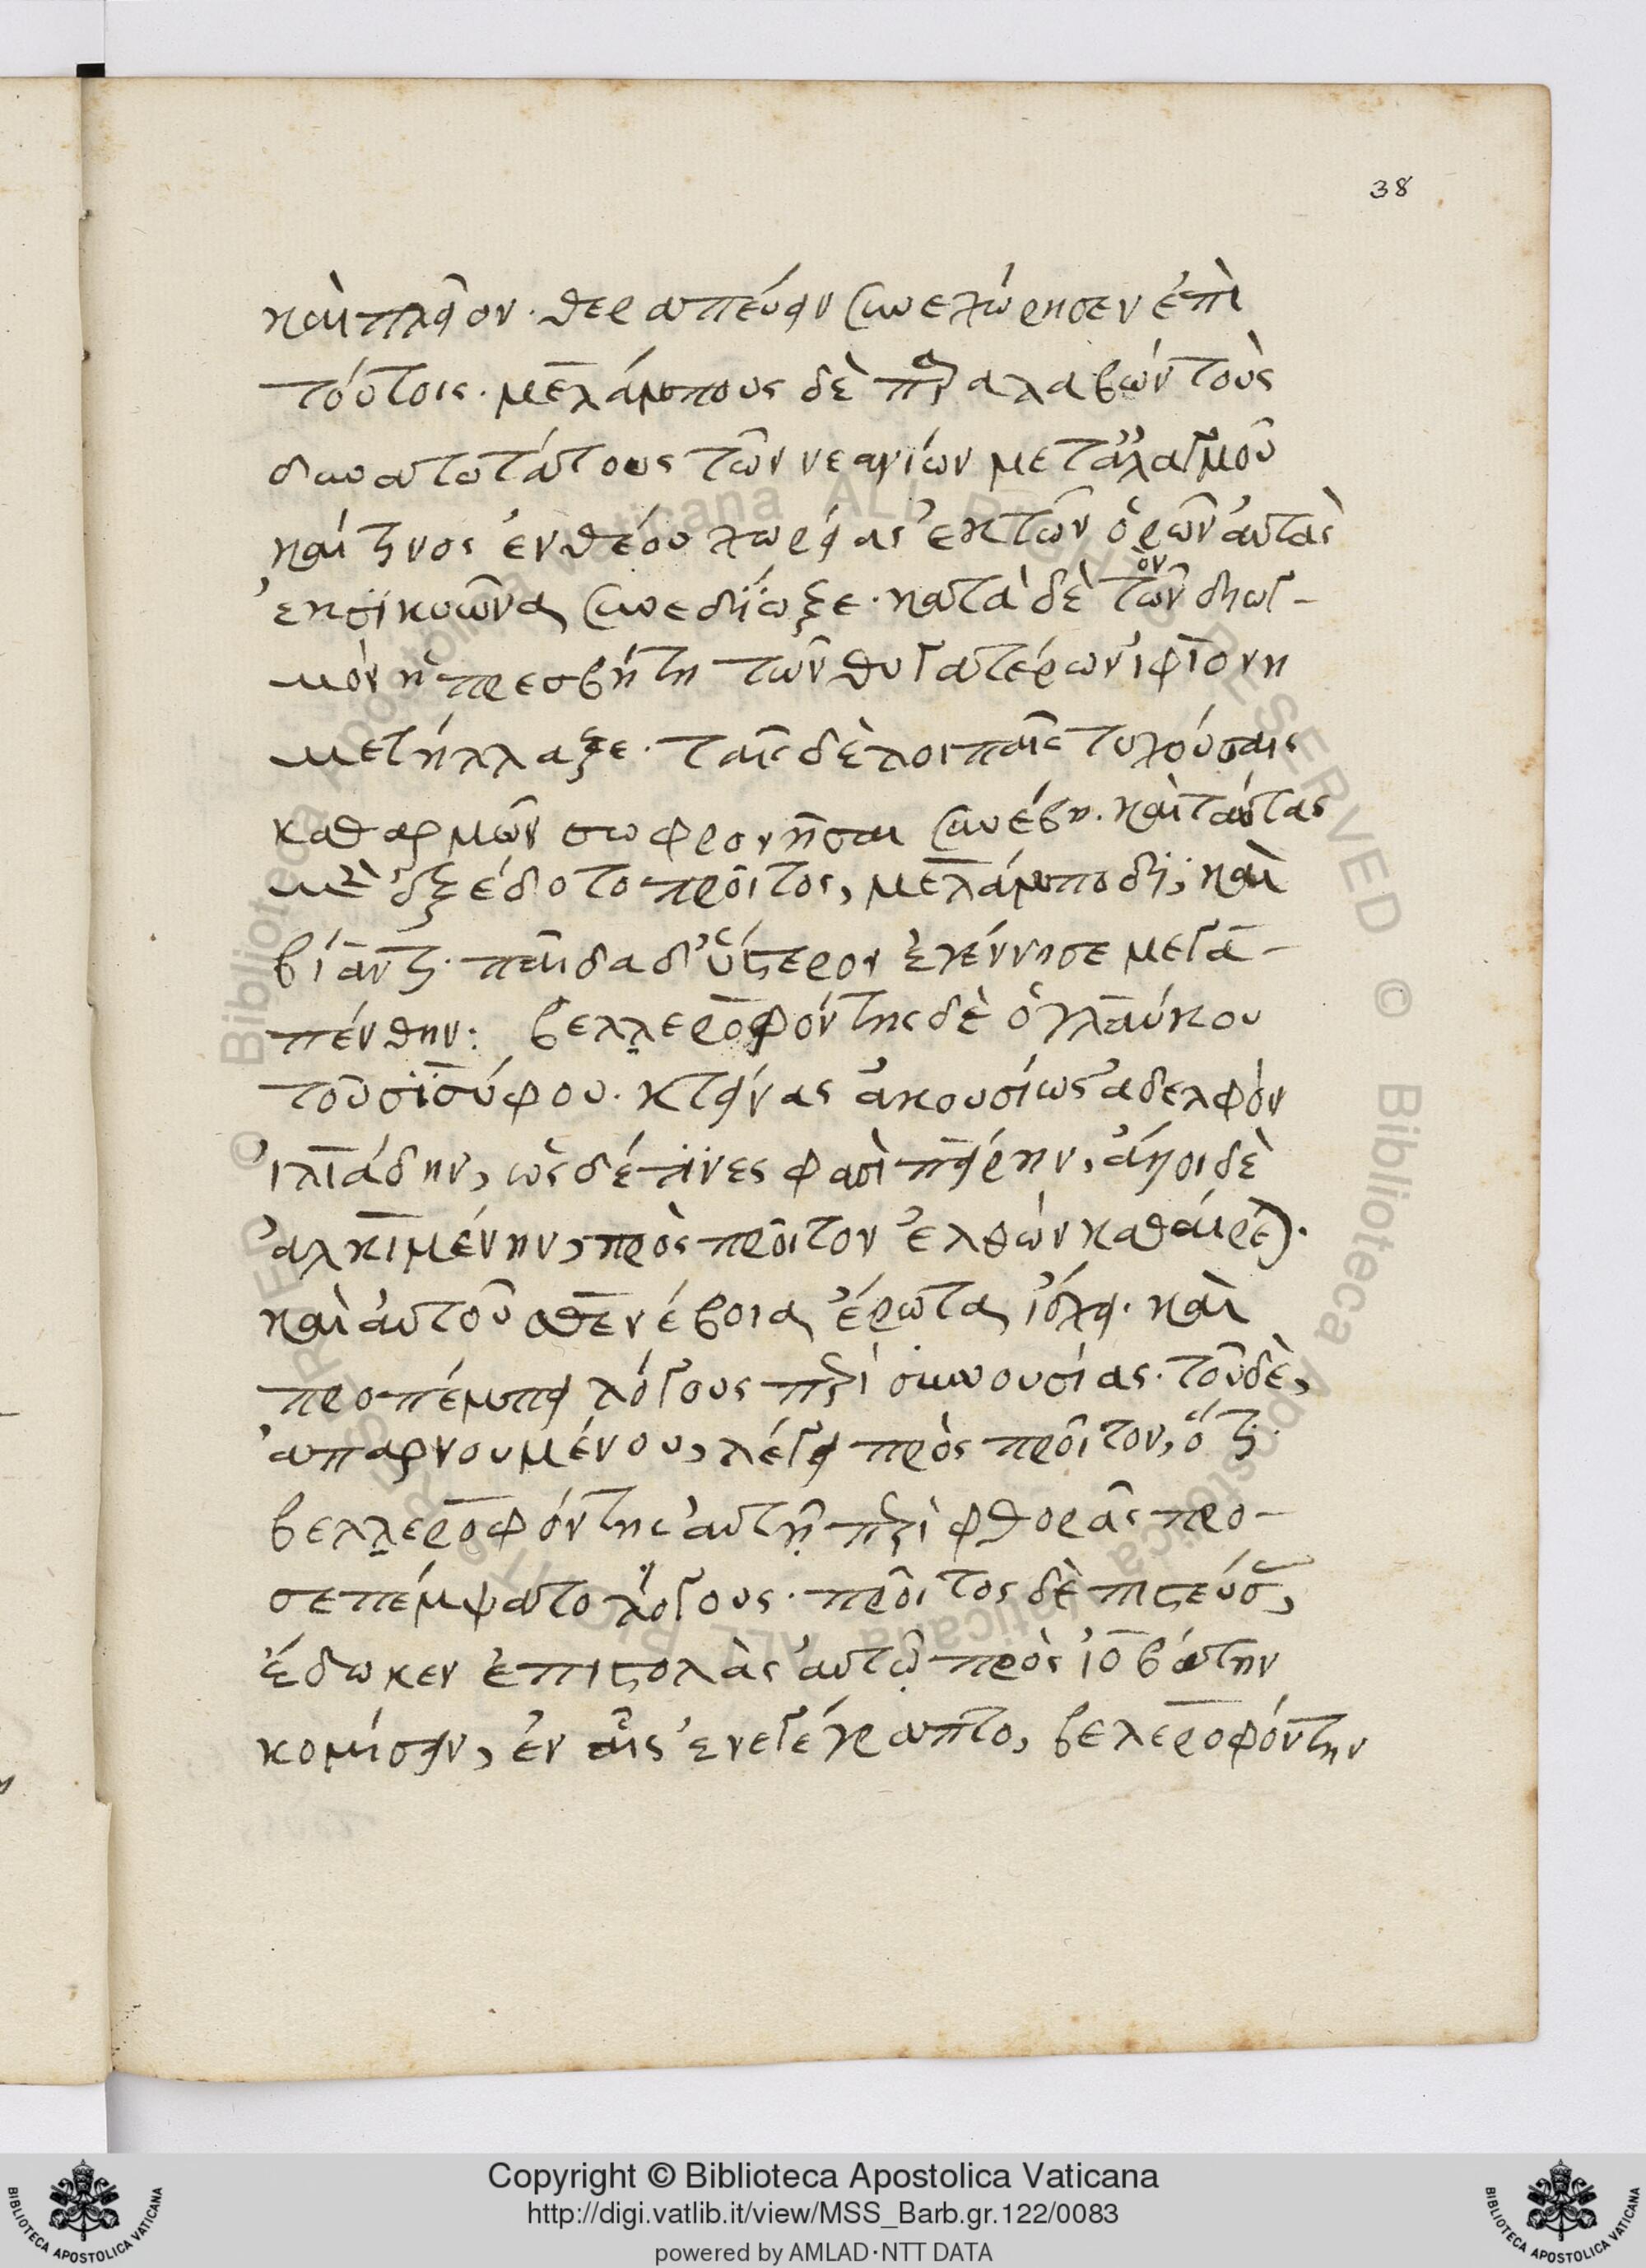 38
καὶ πλεῖον. θεραπεύειν συνεχώρησεν ἐπὶ
τούτοις. μελάμπους δὲ παραλαβὼν τοὺς
δυνατωτάτους τῶν νεανίων μετ' ἀλαλαγμοῦ
καί τινος ἐνθέου χωρείας ἐκ τῶν ὀρῶν αὐτὰς
ἐκ σικυῶνα συνεδίωξε. κατὰ δὲ τὸν διωγ-
μὸν ἡ πρεσβήτη τῶν θυγατέρων ἰφιόνη
μετήλλαξε. ταῖς δὲ λοιπαῖς τυχούσαις
καθαρμῶν σωφρονῆσαι συνέβη. καὶ ταύτας
μὲν ἐξέδοτο προῖτος, μελάμποδι, καὶ
βίαντι. παῖδα δ' ὕστερον ἐγέννησε μεγα-
πένθην: βελλεροφόντης δὲ ὁ γλαύκου
τοῦ σισύφου. κτείνας ἀκουσίως ἀδελφὸν
ἰλιάδην, ὡς δέ τινες φασὶ πειρήν, ἄλλοι δὲ
ἀλκιμένην, πρὸς προῖτον ἐλθὼν καθαίρεται.
καὶ αὐτοῦ σθενέβοια ἔρωτα ἴσχει. καὶ
προπέμπει λόγους περὶ συνουσίας. τοῦ δὲ,
ἀπαρνουμένου, λέγει πρὸς προῖτον, ὅτι
βελλεροφόντης αὐτῇ περὶ φθορᾶς προ-
σεπέμψατο λόγους. προῖτος δὲ πιστεύσας,
ἔδωκεν ἐπιστολὰς αὐτῷ πρὸς ἰοβάτην
κομίσειν, ἐν αἷς ἐνεγέγραπτο, βελεροφόντην
Copyright © Biblioteca Apostolica Vaticana
http://digi.vatlib.it/view/MSS_Barb.gr.122/0083
powered by AMLAD·NTT DATA